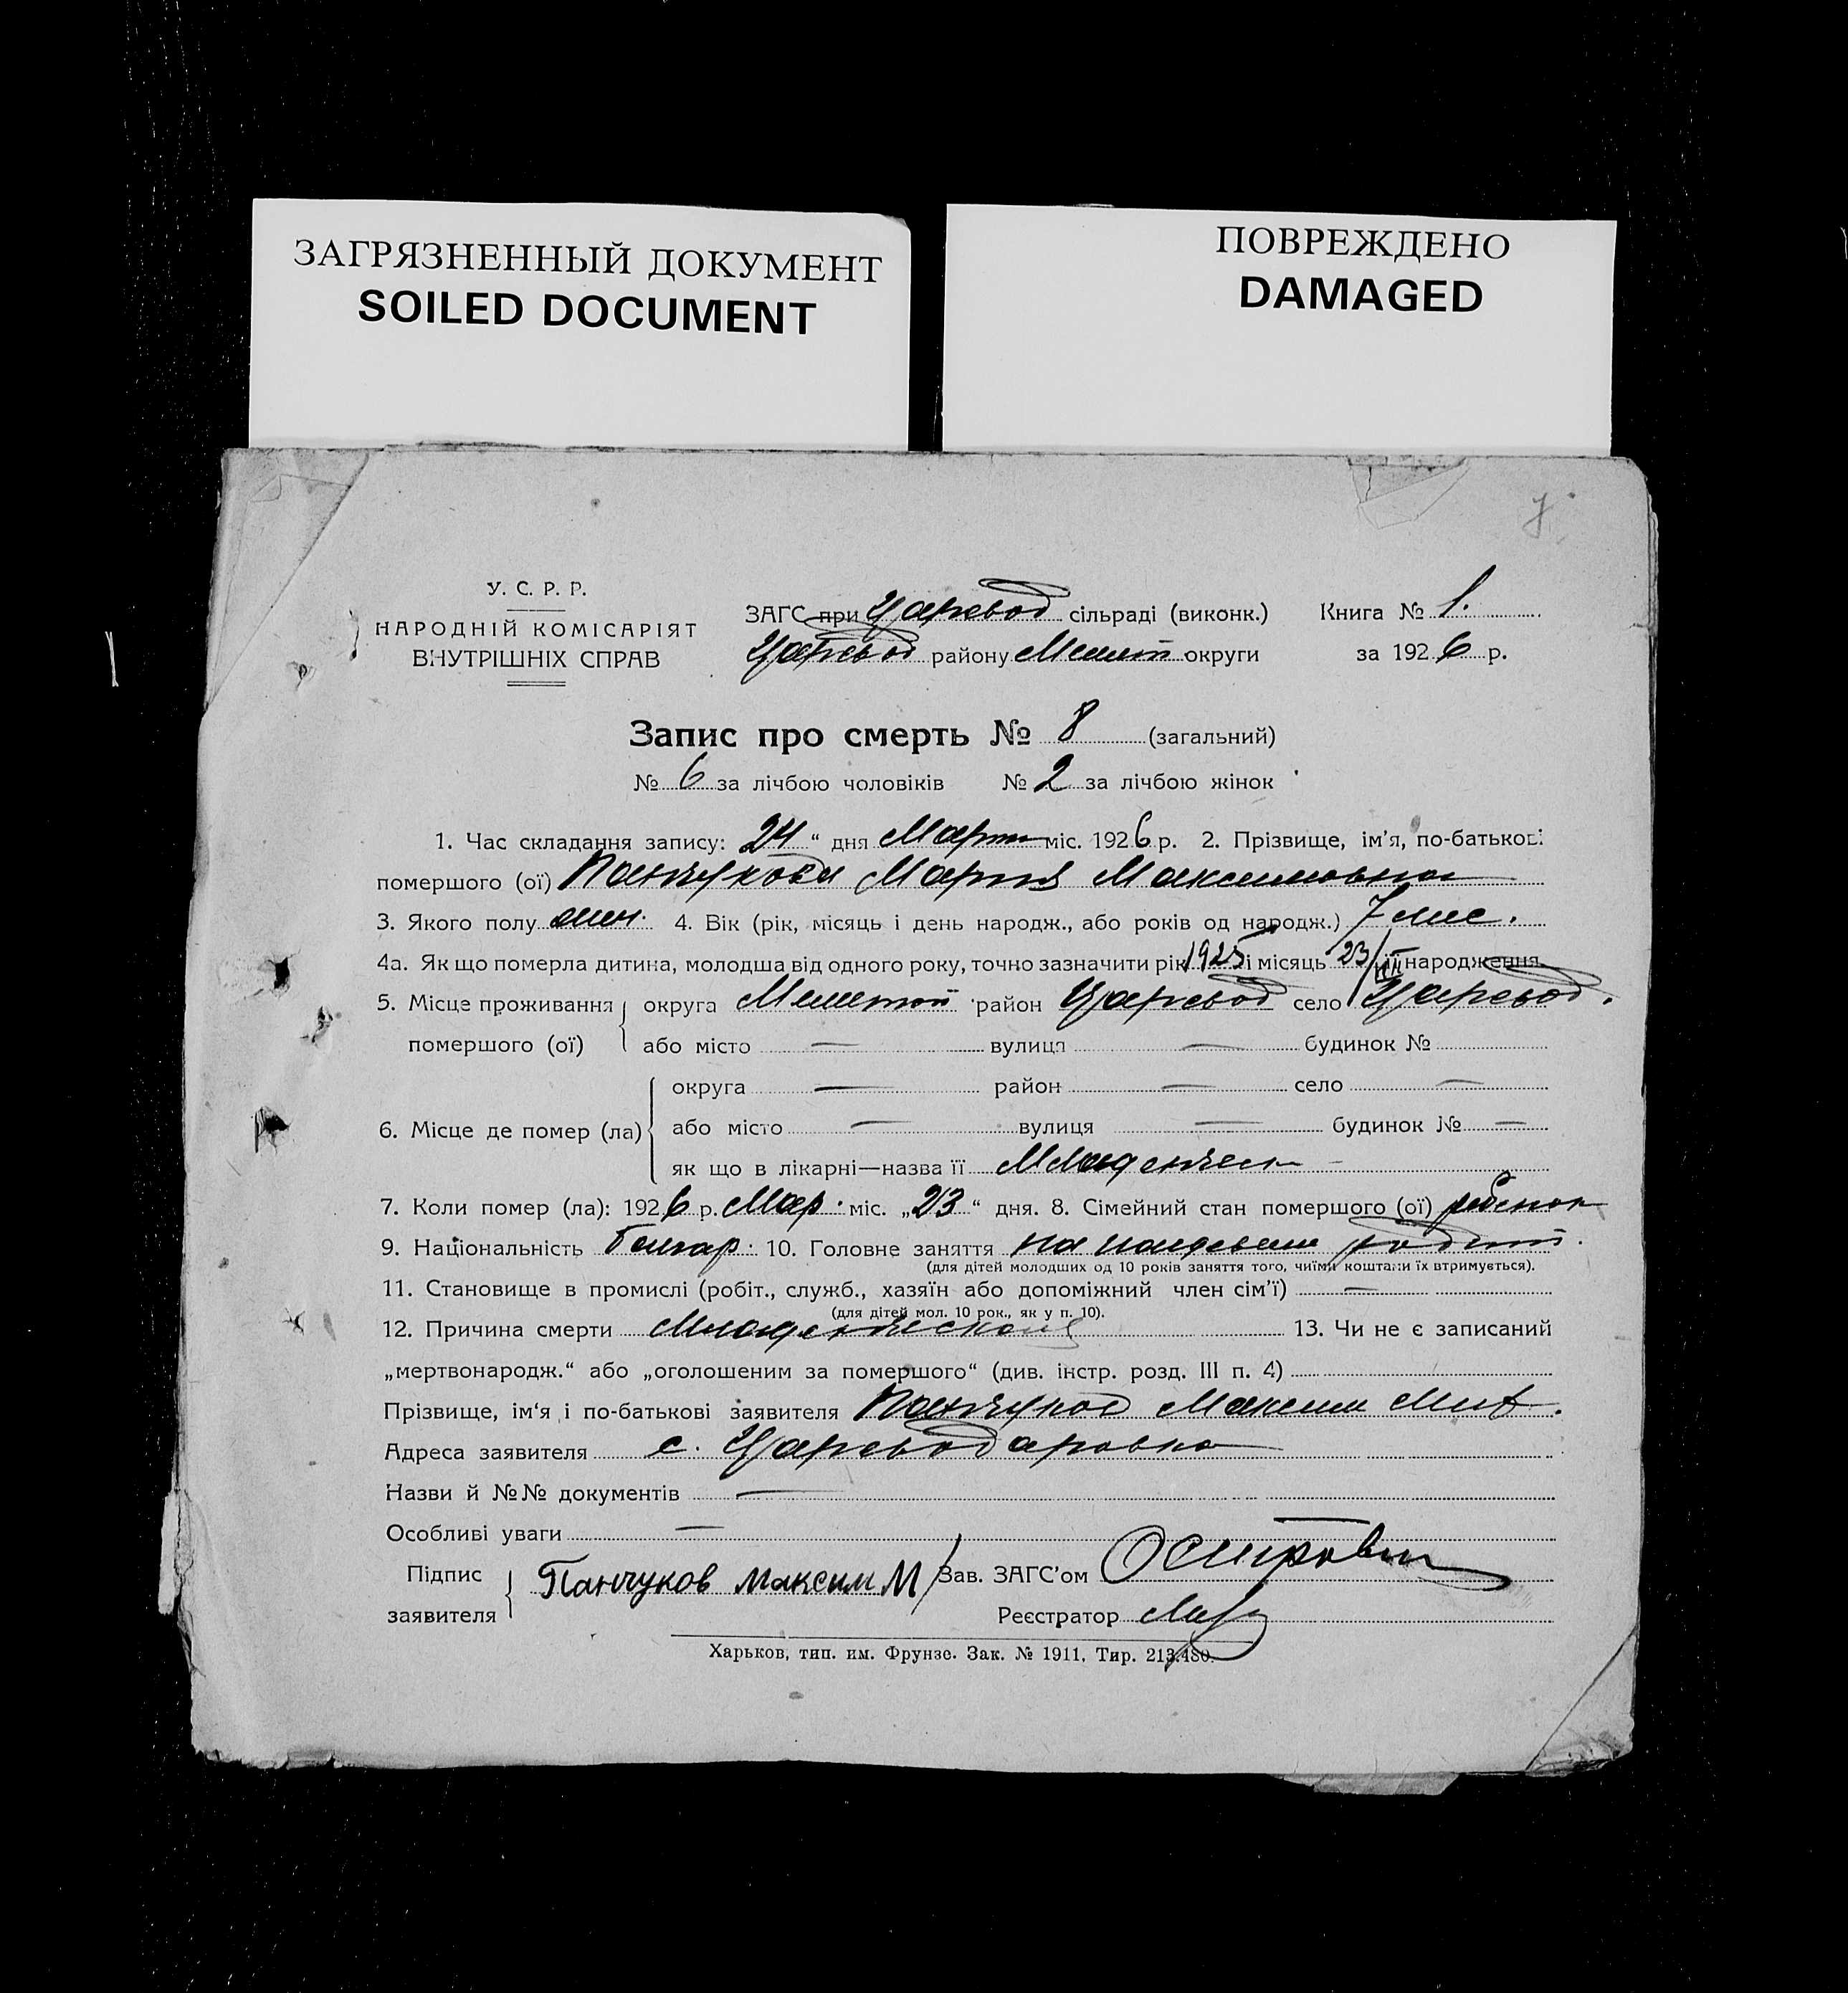 ЗАГРЯЗНЕННЫЙ ДОКУМЕНТ
SOILED DOCUMENT
ПОВРЕЖДЕНО
DAMAGED
У. С. Р. Р.
НАРОДНІЙ КОМІСАРІЯТ
ВНУТРІШНІХ СПРАВ
ЗАГС при Царевод сільраді (виконк.) Книга № 1.
Царевод району Мелит округи за 1926 р.
Запис про смерть № 8 (загальний)
№ 6 за лічбою чоловіків № 2 за лічбою жінок
1. Час складання запису: 24 “ дня Марта міс. 1926 р. 2. Прізвище, ім’я, по-батькові
помершого (ої) Панчукова Мария Максимовна
3. Якого полу жен. 4. Вік (рік, місяць і день народж., або років од народж.) 7 мес.
4а. Як що померла дитина, молодша від одного року, точно зазначити рік 1925 і місяць 23/VII її народження
5. Місце проживання округа Мелитоп район Царевод село Царевод.
помершого (ої) або місто — вулиця — будинок №
округа — район — село —
6. Місце де помер (ла) або місто — вулиця — будинок № —
як що в лікарні—назва її Младенческ —
7. Коли помер (ла): 1926 р. Мар. міс. „23“ дня. 8. Сімейний стан помершого (ої) ребенок
9. Національність Болгар. 10. Головне заняття на иждевении родит.
(для дітей молодших од 10 років заняття того, чиїми коштами їх втримується).
11. Становище в промислі (робіт., служб., хазяїн або допоміжний член сім’ї) —
(для дітей мол. 10 рок., як у п. 10).
12. Причина смерти Младенческая 13. Чи не є записаний
„мертвонародж.“ або „оголошеним за помершого“ (див. інстр. розд. III п. 4)
Прізвище, ім‘я і по-батькові заявителя Панчуков Максим Мит.
Адреса заявителя с. Цареводаровка
Назви й №№ документів —
Особливі уваги —
Підпис заявителя Панчуков Максим М Зав. ЗАГС’ом
Реєстратор
Харьков, тип. им. Фрунзе. Зак. № 1911. Тир. 213.480.